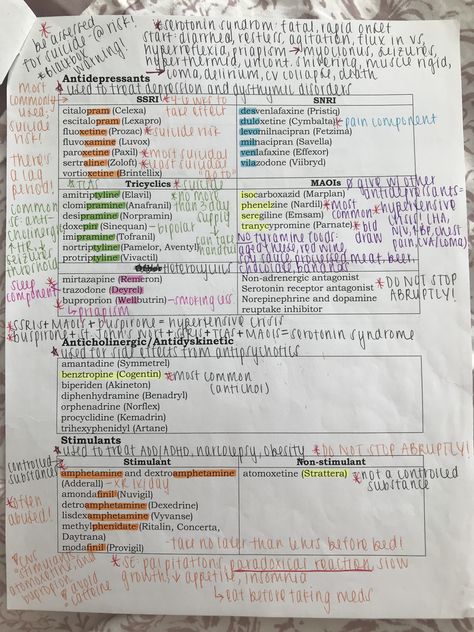 be assessed
for suicide @ risk!
*blackbox
warning!
*serotonin syndrom: fatal, rapid onset
start: diarrhea, restless, agitation, flux in vs,
hyperreflexia, priapism → myoclonus, seizures,
hyperthermia, uncont. shivering, muscle rigid,
coma, delirium, cv collapse, death
Antidepressants
*used to treat depression and dysthymic disorders
SSRI
*4-6 wks to take effect
citalopram (Celexa)
escitalopram (Lexapro)
fluoxetine (Prozac) *suicide risk
fluvoxamine (Luvox)
paroxetine (Paxil) *most suicidal
sertraline (Zoloft) *least suicidal
vortioxetine (Brintellix)
"go to"
SNRI
desvenlafaxine (Pristiq)
duloxetine (Cymbalta) *pain component
levomilnacipran (Fetzima)
milnacipran (Savella)
venlafaxine (Effexor)
vilazodone (Viibryd)
most
commonly
used,
suicide
risk!
there's
a lag
period!
Tricyclics
*TCAs
*suicide
amitriptyline (Elavil)
clomipramine (Anafranil)
desipramine (Norpramin)
doxepin (Sinequan) - bipolar
imipramine (Tofranil)
nortriptyline (Pamelor, Aventyl)
protriptyline (Vivactil)
no more
than 7 day
supply
can take
common
ss: anti-
cholinergic
MAOIs
isocarboxazid (Marplan)
phenelzine (Nardil) *most
seregiline (Emsam) common
tranycypromine (Parnate)
Ø give w/ other
antidepressants=
*hypertensive
crisis! (HA,
N/V, ↑BP, chest
pain, CVA, coma)
No tyramine foods:
aged cheese, red wine,
soy sauce, processed meat, beer
chocolate, bananas
Heterocyclics
mirtazapine (Remeron)
trazodone (Deyrel)
buproprion (Wellbutrin) - smoking cess.
→ priapism
sleep
component
Non-adrenergic antagonist
Serotonin receptor antagonist
Norepinephrine and dopamine
reuptake inhibitor
*DO NOT STOP
ABRUPTLY!
*SSRIs + MAOIs + buspirone = hypertensive crisis
*buspirone + St. John's Wort + SSRI + TCAs + MAOIs = serotonin syndrome
Anticholinergic/Antidyskinetic
*used for side effects from antipsychotics
amantadine (Symmetrel)
benztropine (Cogentin) *most common
(antichol)
biperiden (Akineton)
diphenhydramine (Benadryl)
orphenadrine (Norflex)
procyclidine (Kemadrin)
trihexyphenidyl (Artane)
Stimulants
*used to treat ADD/ADHD, narcolepsy, obesity *DO NOT STOP ABRUPTLY!
controlled
substance
Stimulant
amphetamine and dextroamphetamine
(Adderall) - XR 1x/day
amondafinil (Nuvigil)
detroamphetamine (Dexedrine)
lisdexamphetamine (Vyvanse)
methylphenidate (Ritalin, Concerta,
Daytrana)
modafinil (Provigil)
Non-stimulant
atomoxetine (Strattera) *not a controlled
substance
*often
abused!
- take no later than 6 hrs before bed!
*CNS
stimulant: and
atomoxetine and
bupropion
avoid
caffeine
*SE: palpitations, paradoxical reaction, slow
growth, ↓ appetite, insomnia
↳ eat before taking meds